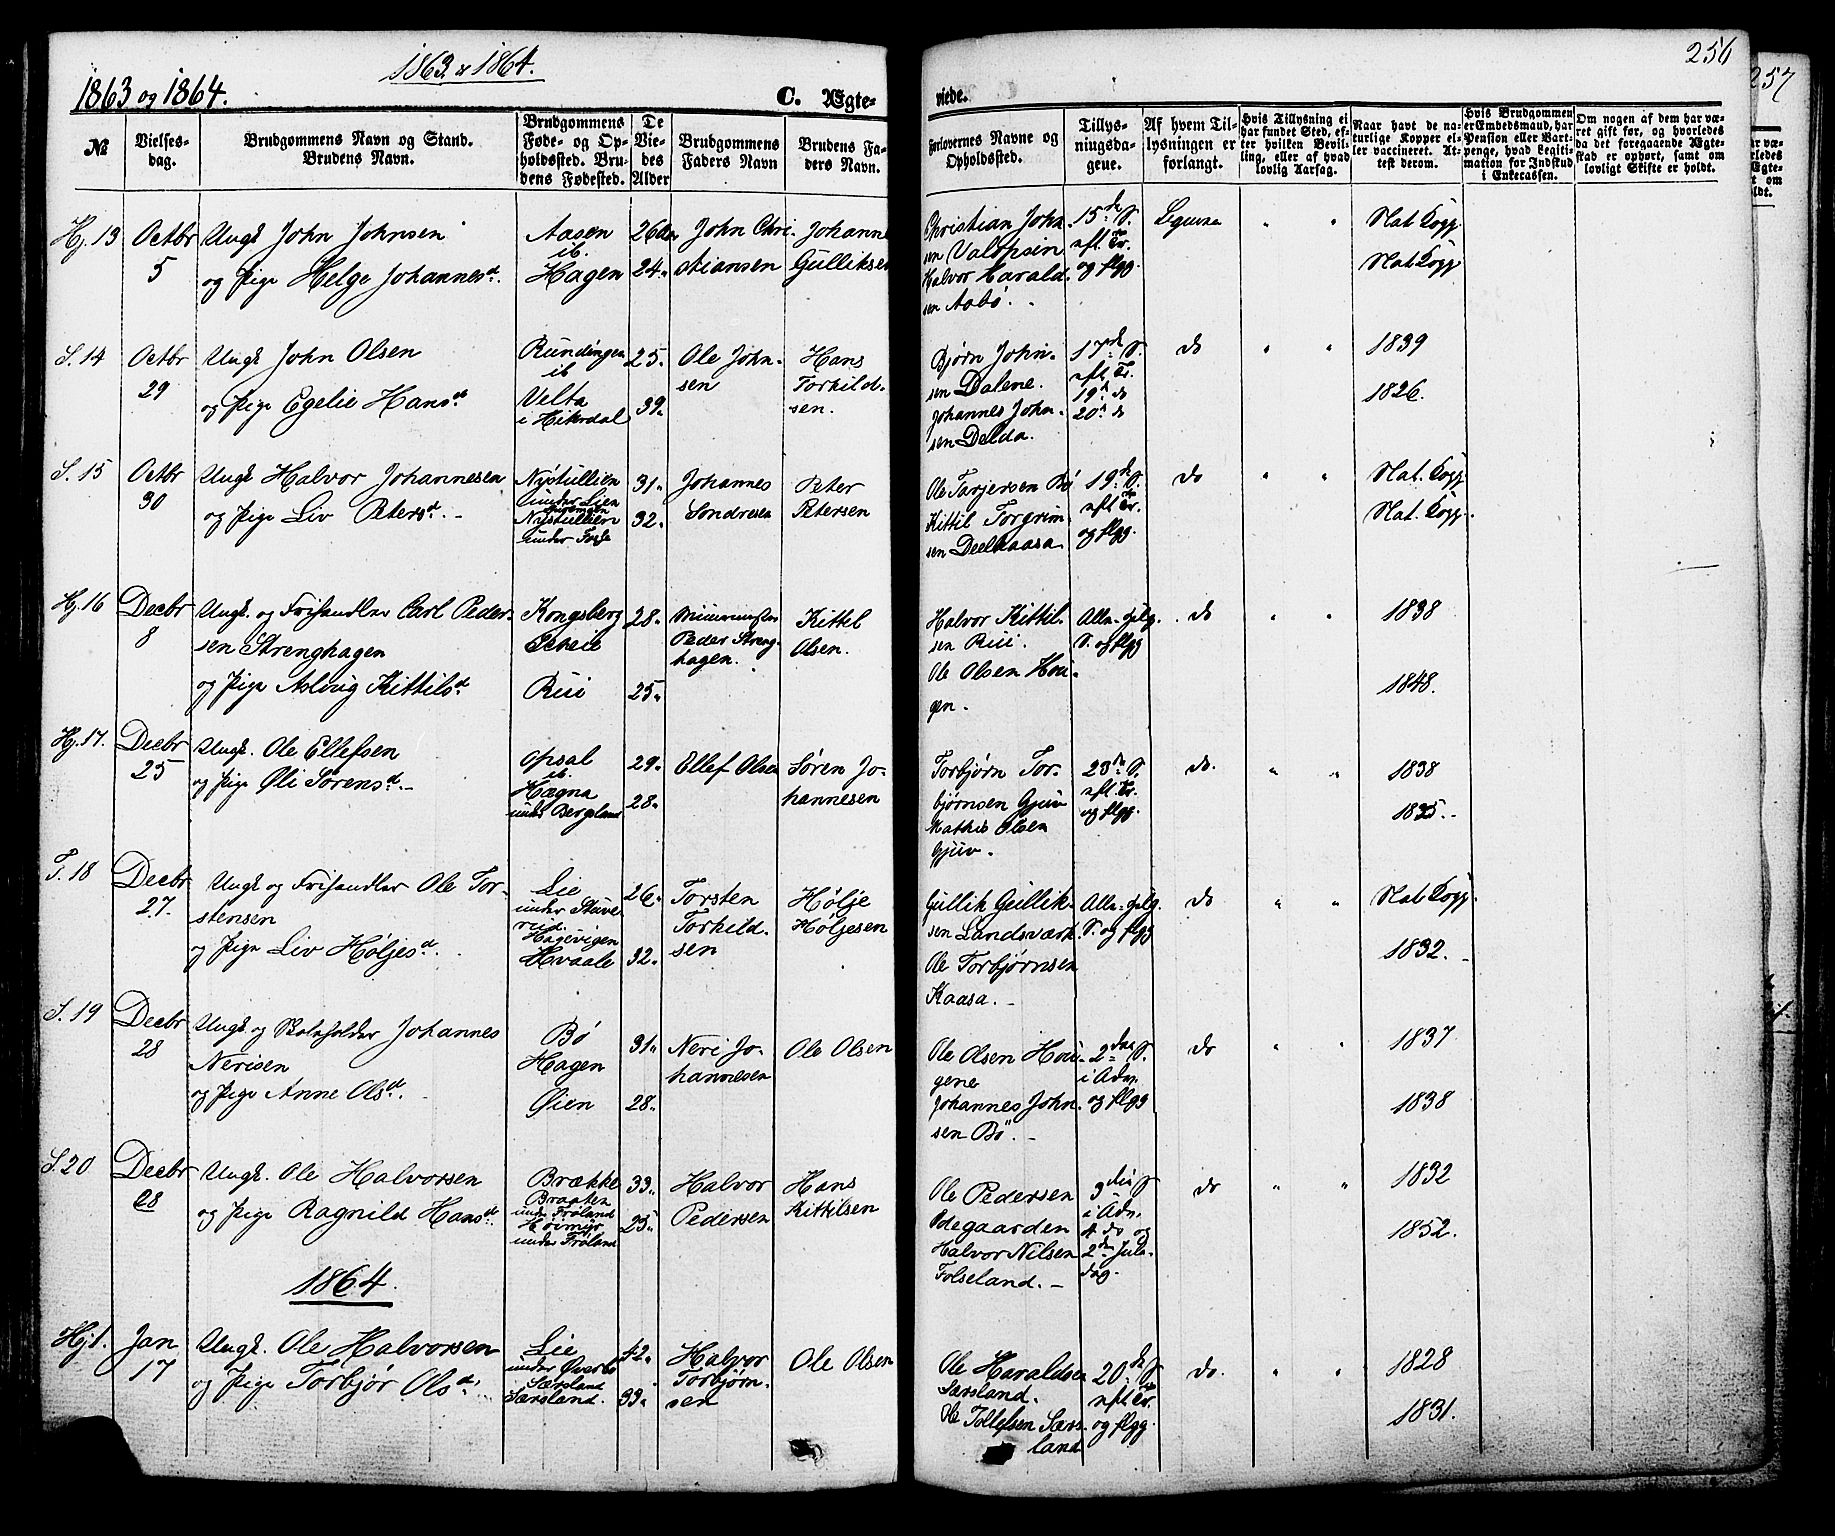 1863 & 1864.
256
257
1863 og 1864.
C. Ægte-
viede.
№
Vielses-
dag.
Brudgommens Navn og Stand.
Brudens Navn.
Brudgommens
Føde- og Op-
holdssted. Bru-
dens Fødested.
De
Vie-
des
Alder
Brudgommens
Faders Navn
Brudens Fa-
ders Navn.
Forlovernes Navne og
Opholdssted.
Tillys-
ningsda-
gene.
Af hvem Til-
lysningen er
forlangt.
Hvis Tillysning ei
har fundet Sted, ef-
ter hvilken Bevil-
ling, eller af hvad
lovlig Aarsag.
Naar havt de na-
turlige Kopper el-
ler vaccineret. At-
test derom.
Hvis Brudgommen
er Embedsmand, har
Pension eller Vart-
penge, hvad Legiti-
mation for Indskud
i Enkecassen.
Om nogen af dem har væ-
ret gift før, og hvorledes
da det foregaaende Ægte-
skab er ophørt, samt om
lovligt Skifte er holdt.
Hj. 13
Octbr
5
Ungk John Johnsen
og Pige Helge Johannesd.
Aasen
ib.
Hagen
26
24
John Chri-
stiansen
Johannes
Gulliksen
Christian John-
sen
Halvor Harald-
sen Aabø.
15de S.
eft. Tr.
og flgg.
Nat. Kopp.
Nat. Kopp.
S. 14
Octbr
29
Ungk John Olsen
og Pige Egelie Hansd
Rundingen
ib
Velta
i Hiterdal
25.
39.
Ole John-
sen
Hans
Torkild-
sen.
Bjørn John-
sen Dalene.
Johannes John-
sen Delda.
17de S.
eft. Tr.
19d do
20d do
do
1839
1826.
S. 15
Octbr
30
Ungk Halvor Johannesen
og Pige Liv Petersd.
Nystullien
under Lien
Nystullien
31
32
Johannes
Sondresen
Peter
Petersen
Ole Tarjersen Bø
Kittil Torgrim-
sen Deelkaasa
19de S.
eft. Tr.
og flgg.
do
Nat. Kopp
Nat. Kopp.
Hj. 16
Decbr
8
Ungk. og Frihandler Carl Peder-
sen Strenghagen
og Pige Aslaug Kittilsd
Kongsberg
Rui
28
25
Peder Streng-
hagen.
Kittil
Olsen.
Halvor Kittil-
sen Rui.
Ole Olsen Hou-
gen.
S. og flgg
do
1838
1848.
Hj. 17.
Decbr
25
Ungk. Ole Ellefsen
og Pige Øli Sørensd.
Opsal
ib.
Hægna
under Bergland
29
28
Ellef Olsen
Søren Jo-
hannesen
Torbjørn Tor-
bjørnsen Gjuv
Mathis Olsen
Gjuv.
23de S.
eft. Tr.
og flgg.
do.
1838
1835.
T. 18
Decbr
27.
Ungk og Frihandler Ole Tor-
stensen
og Pige Liv Høljesd.
Lie
under Stuve-
rud.
Hagevigen
Hvaale
26
32
Torsten
Torkild-
sen
Hølje
Høljesen
Gullik Gullik-
sen Landsværk
Ole Torbjørnsen
Kaasa.
S. og flgg
do
Nat. Kopp
1832.
S. 19
Decbr
28
Ungk og Johannes
Nerisen
og Pige Anne Olsd.
Bø
Hagen
Øien
31
28
Neri Jo-
hannesen
Ole Olsen
Ole Olsen Hou-
gene
Johannes John-
sen Bø.
2den S.
i Adv.
og flgg
do
1837
1838
S. 20
Decbr
28
Ungk. Ole Halvorsen
og Pige Ragnild Hansd.
Brække
Braaten
under Frøland
Høimyr
under Frøland
33
25
Halvor
Pedersen
Hans
Kittilsen
Ole Pedersen
Ødegaarden
Halvor Nilsen
Folseland.
3die S
i Adv.
4 do og
2den Jule-
dag.
do
1832
1852.
1864.
Hj. 1.
Jan
17
Ungk. Ole Halvorsen
og Pige Torbjør Olsd
Lie
under Øverbø
Særsland
Særsland.
42
33
Halvor
Torbjørn-
sen
Ole Olsen
Ole Haraldsen
Særsland.
Ole Tollefsen Særs-
land
20de S
eft. Tr.
og flgg.
do.
1828
1831.